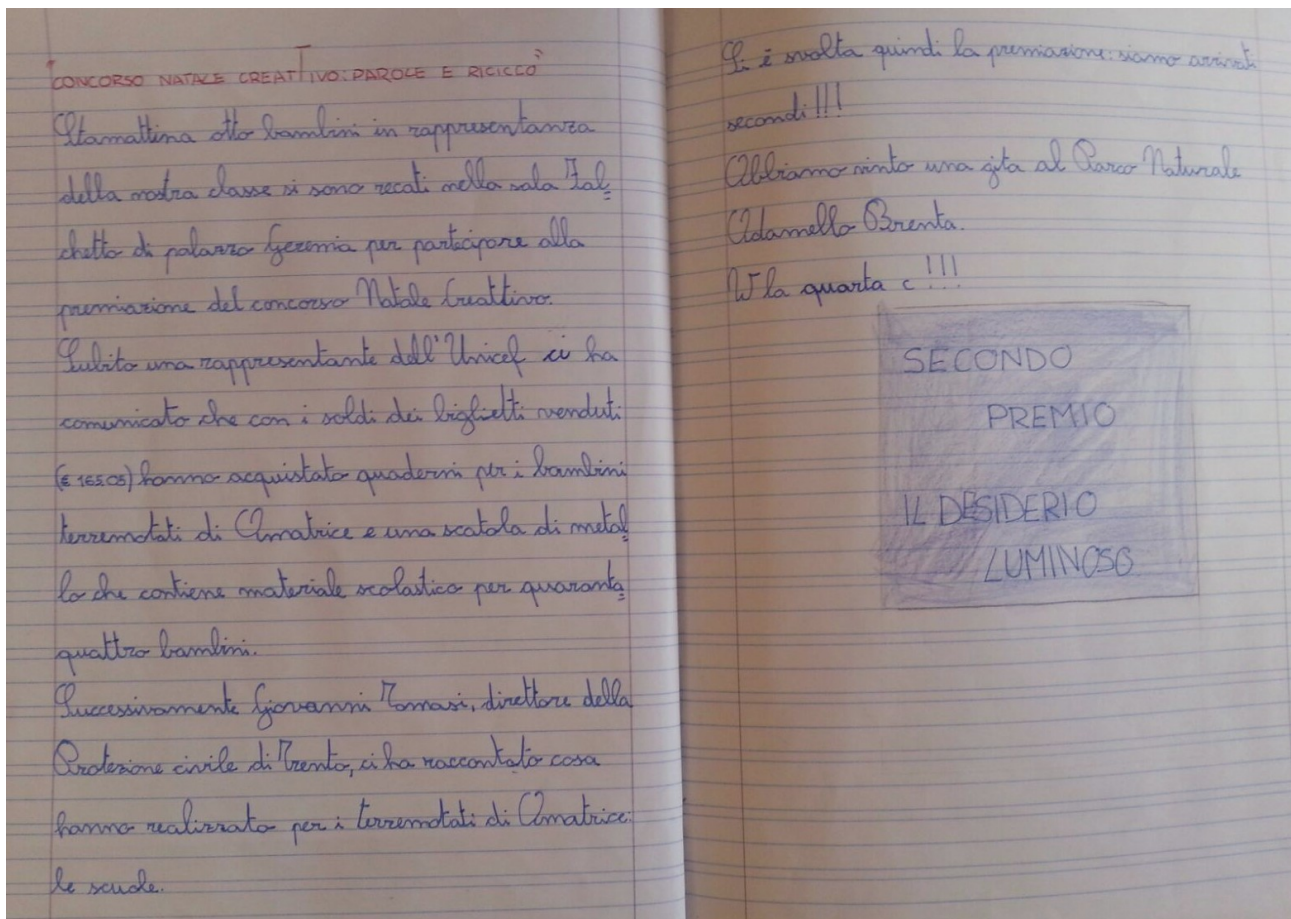 "CONCORSO NATALE CREATTIVO: PAROLE E RICICLO"
Stamattina otto bambini in rappresentanza
della nostra classe si sono recati nella sala Fal=
chetto di palazzo Geremia per partecipare alla
premiazione del concorso Natale Creattivo.
Subito una rappresentante dell'Unicef ci ha
comunicato che con i soldi dei biglietti venduti
(€ 165,05) hanno acquistato quaderni per i bambini
terremotati di Amatrice e una scatola di metal=
lo che contiene materiale scolastico per quaranta=
quattro bambini.
Successivamente Giovanni Tomasi, direttore della
Protezione civile di Trento, ci ha raccontato cosa
hanno realizzato per i terremotati di Amatrice:
le scuole.
Si è svolta quindi la premiazione: siamo arrivati
secondi!!!
Abbiamo vinto una gita al Parco Naturale
Adamello Brenta.
W la quarta c!!!
SECONDO
PREMIO
IL DESIDERIO
LUMINOSO